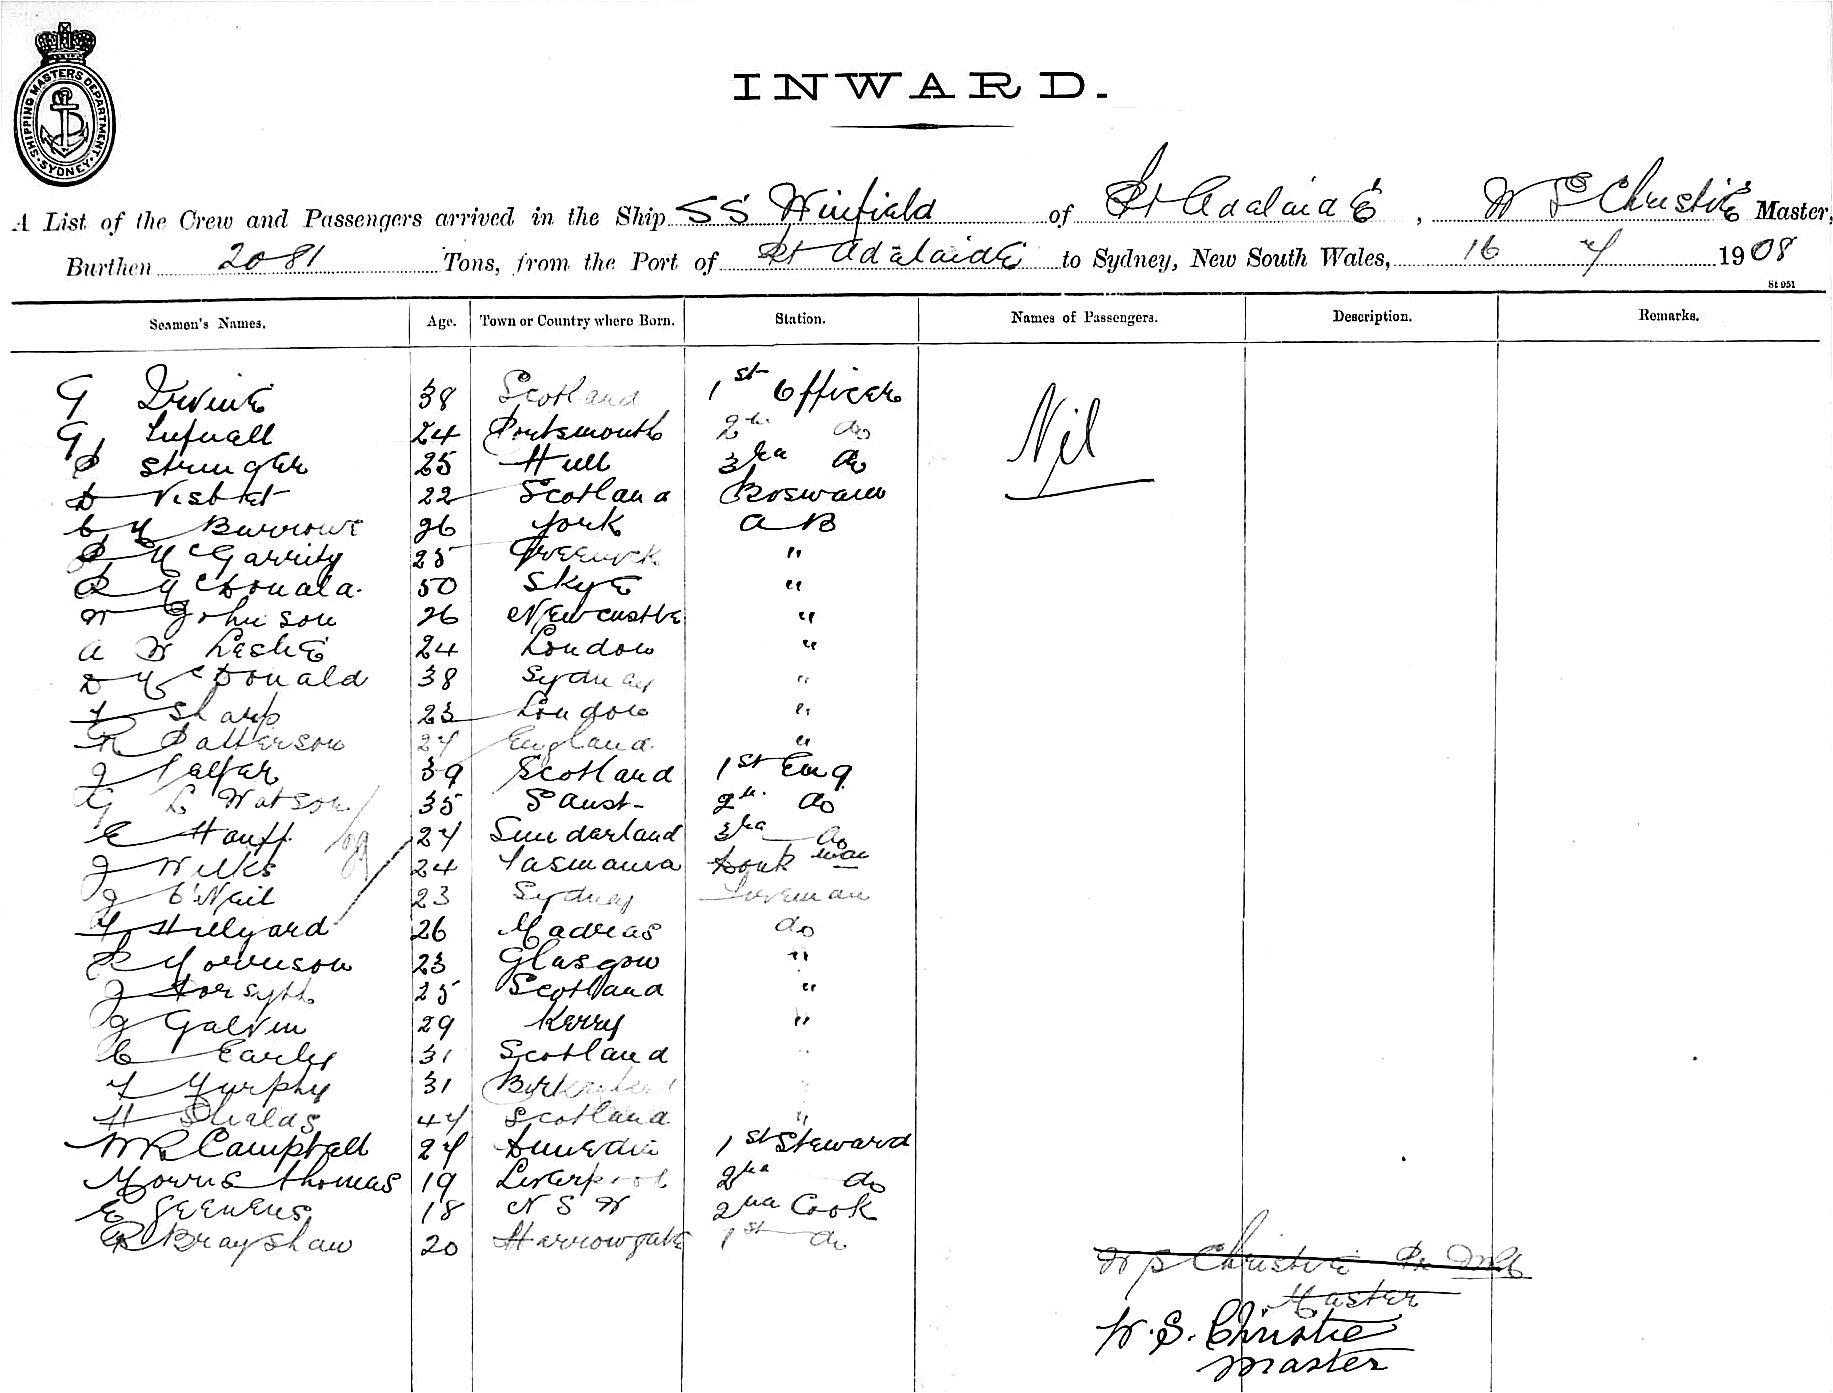 SHIPPING MASTERS DEPARTMENT · SYDNEY ·
INWARD.
A List of the Crew and Passengers arrived in the Ship SS Winfield of Pt Adalaide, W S Christie Master,
Burthen 2081 Tons, from the Port of Pt Adalaide to Sydney, New South Wales, 16 7 1908
St 951
Seamen's Names. Age. Town or Country where Born. Station. Names of Passengers. Description. Remarks.
G Irvine 38 Scotland 1st Officer
G 24 Portsmouth 2nd do
P Stringer 25 Hull 3rd do Nil
D Nisbet 22 Scotland Boswain
C H Burrows 26 York A B
P McGarrity 25 Greenock "
R McDonald 50 Skye "
W Johnson 26 Newcastle "
A W Leslie 24 London "
D McDonald 38 Sydney "
T Sharp 23 London "
R Patterson 27 England "
J Telfer 39 Scotland 1st Eng
G L Watson 35 S Aust- 2nd do
E Hauff 27 Sunderland 3rd do
J Wilks 24 Tasmania Donkman
J O'Neil 23 Sydney Fireman
T Hillyard 26 Madras do
R Morrison 23 Glasgow "
J Forsyth 25 Scotland "
J Galvin 29 Kerry "
C Early 31 Scotland
T Murphy 31 Birkenhead
H Shields 47 Scotland "
W R Campbell 27 Dunedin 1st Steward
Morris Thomas 19 Liverpool 2nd do
E 18 N S W 2nd Cook
R Brayshaw 20 Harrowgate 1st do
W S Christie Pr
Master
W. S. Christie
Master